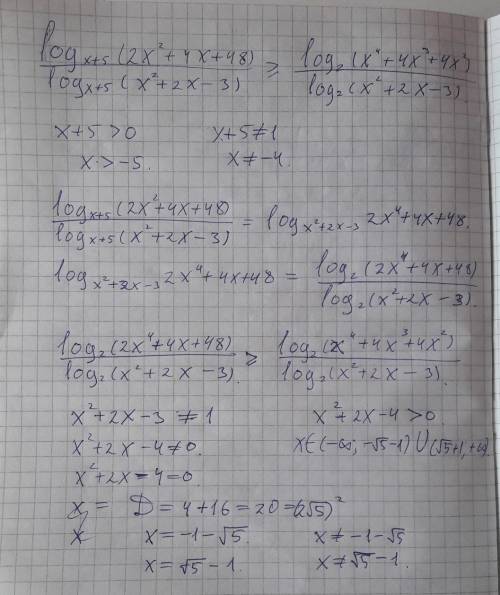 log_{x+5}(2x²+4x+48) / log_{x+5}(x²+2x-3) ≥ log₂(x⁴+4x³+4x²) / log₂(x²+2x-3)
x+5>0 x+5≠1
x>-5. x≠-4.
log_{x+5}(2x²+4x+48) / log_{x+5}(x²+2x-3) = log_{x²+2x-3} 2x⁴+4x+48.
log_{x²+2x-3} 2x⁴+4x+48 = log₂(2x⁴+4x+48) / log₂(x²+2x-3).
log₂(2x⁴+4x+48) / log₂(x²+2x-3) ≥ log₂(x⁴+4x³+4x²) / log₂(x²+2x-3).
x²+2x-3≠1 x²+2x-4>0
x²+2x-4≠0. x∈(-∞,-√5-1)∪(√5+1,+∞).
x²+2x-4=0.
x = D=4+16=20=(2√5)²
x x=-1-√5. x≠-1-√5
x=√5-1. x≠√5-1.